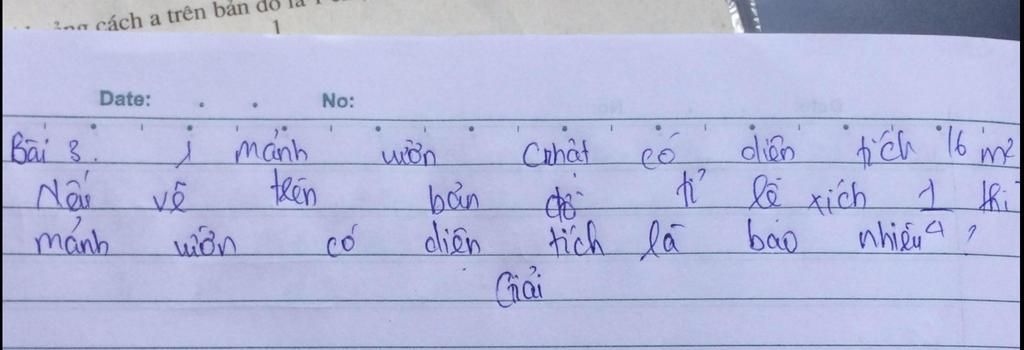 cách a trên bản đồ là 1
1
Date: No:
Bài 3. 1 mảnh vườn Cnhật có diện tích 16 m²
Nếu vẽ trên bản đồ tỉ lệ xích 1/4 thì
mảnh vườn có diện tích là bao nhiêu?
Giải